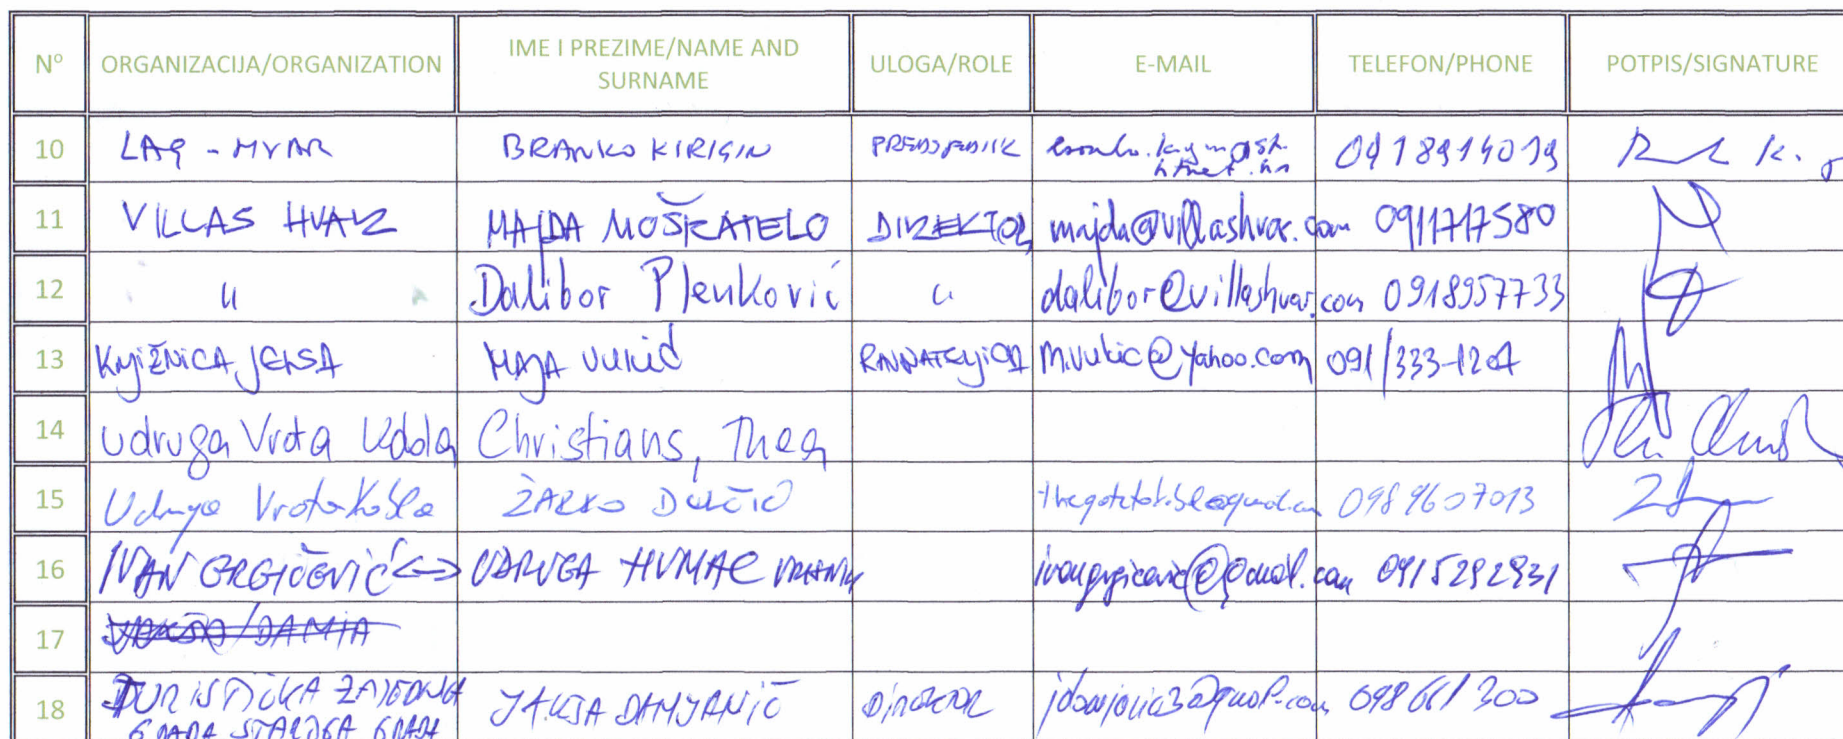 Nº ORGANIZACIJA/ORGANIZATION IME I PREZIME/NAME AND SURNAME ULOGA/ROLE E-MAIL TELEFON/PHONE POTPIS/SIGNATURE
10 LAG - HVAR BRANKO KIRIGIN PREDSJEDNIK 0918914019
11 VILLAS HVAR MAJDA MOŠKATELO DIREKTOR majda@villashvar.com 0911717580
12 " Dalibor Plenković " dalibor@villashvar.com 0918957733
13 KNJIŽNICA JELSA MAJA VUKIĆ RAVNATELJICA M.vukic@yahoo.com 091/333-1207
14 Udruga Vrata Udola Christians, Thea
15 Udruga Vrata ŽARKO DULČIĆ 0989607013
16 IVAN GRGIČEVIĆ <-> UDRUGA HUMAC ivangrgicevic@gmail.com 0915292931
17
18 TURISTIČKA ZAJEDNICA GRADA STAROGA GRADA JAKŠA DAMJANIĆ DIREKTOR 098 661 300